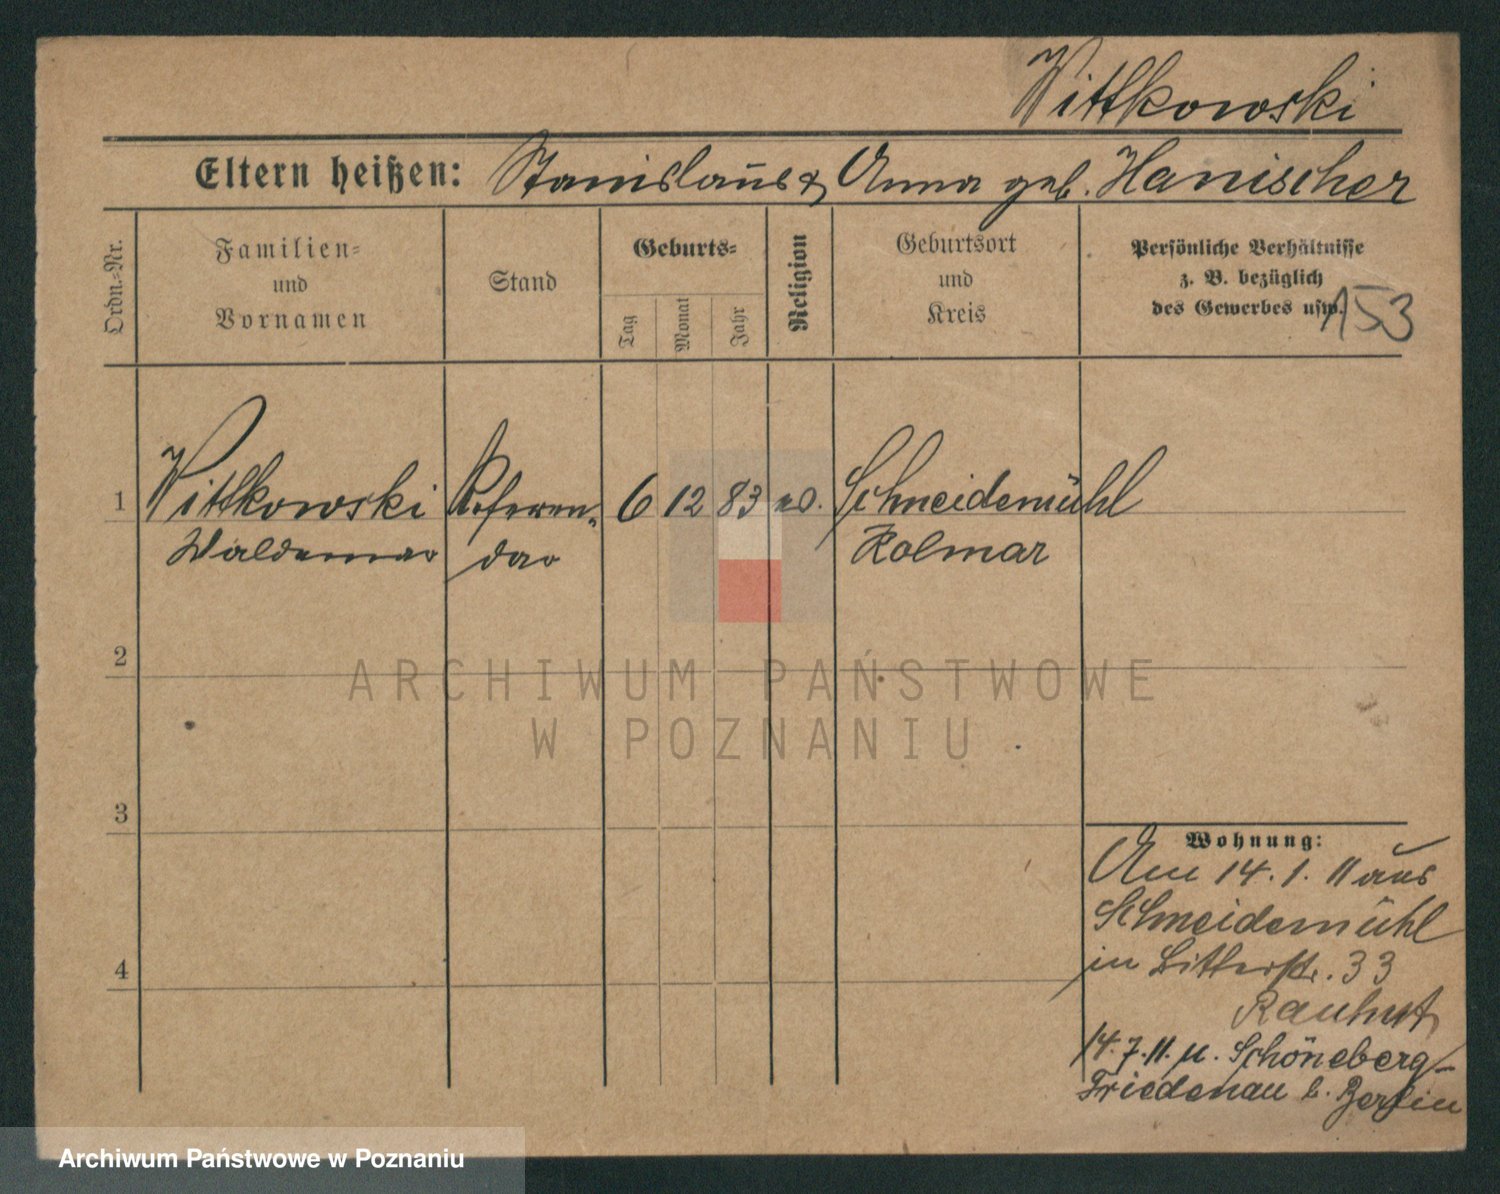 Wittkowski
Eltern heißen: Stanislaus & Anna geb. Hanischer
Ordn.-Nr.
Familien-
und
Vornamen
Stand
Geburts-
Tag
Monat
Jahr
Religion
Geburtsort
und
Kreis
Persönliche Verhältnisse
z. B. bezüglich
des Gewerbes usw.
153
1 Wittkowski Referen- 6 12 83 Schneidemühl
Waldemar dar Kolmar
2
3
4
Wohnung:
Am 14. 1. 11 aus
Schneidemühl
in Ritterstr. 33
Rauhut
14. 7. 11. n. Schöneberg-
Friedenau b. Berlin
ARCHIWUM PAŃSTWOWE
W POZNANIU
Archiwum Państwowe w Poznaniu